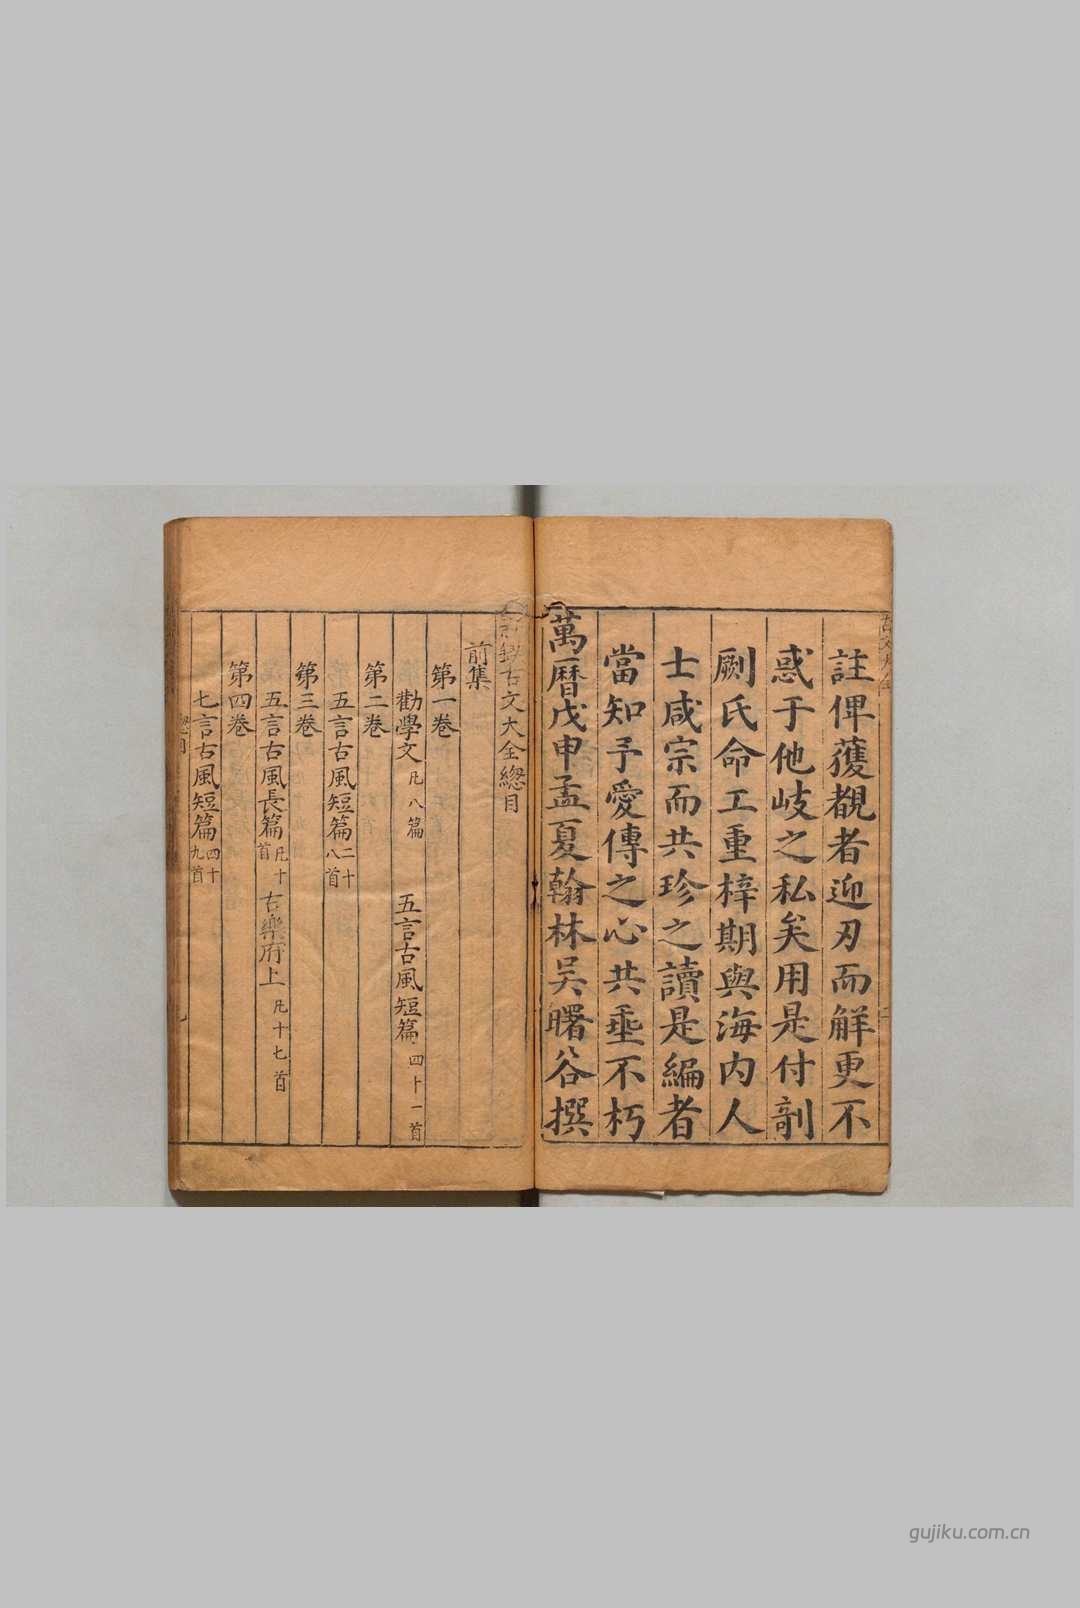 註俾獲覩者迎刃而解更不
惑于他岐之私矣用是付剞
劂氏命工重梓期與海內人
士咸宗而共珍之讀是編者
當知予愛傳之心共垂不朽
萬曆戊申孟夏翰林吳曙谷撰
古文大全總目
前集
第一卷
勸學文 凡八篇 五言古風短篇 四十一首
第二卷
五言古風短篇 二十八首
第三卷
五言古風長篇 凡十首 古樂府上 凡十七首
第四卷
七言古風短篇 四十九首
總目
gujiku.com.cn